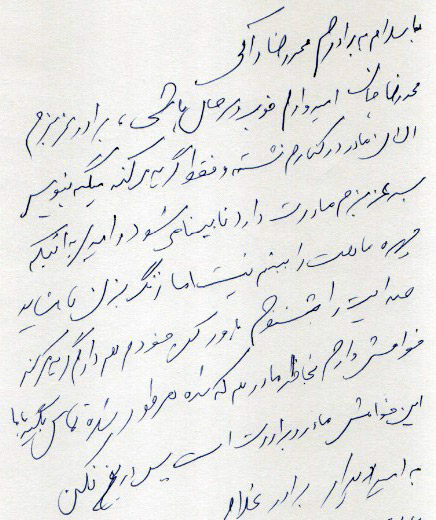 با سلام به برادرم محمدرضا راکی
محمدرضا جان امیدوارم خوب و سرحال باشی، برادر عزیزم
الان مادر در کنارم نشسته و فقط گریه می کنه میگه بنویس
پسر عزیزم مادرت دارد نابینا می شود و امیدی به اینکه
چهره ماهت را ببینم نیست اما زنگ بزن تا شاید
صدایت را بشنوم باور کن خودم هم دارم گریه می کنم
خواهش دارم بخاطر مادر هم که شده هر طور شده تماس بگیر با ما
این خواهش مادر و برادرت است پس دریغ نکن
به امید دیدار برادر غلام